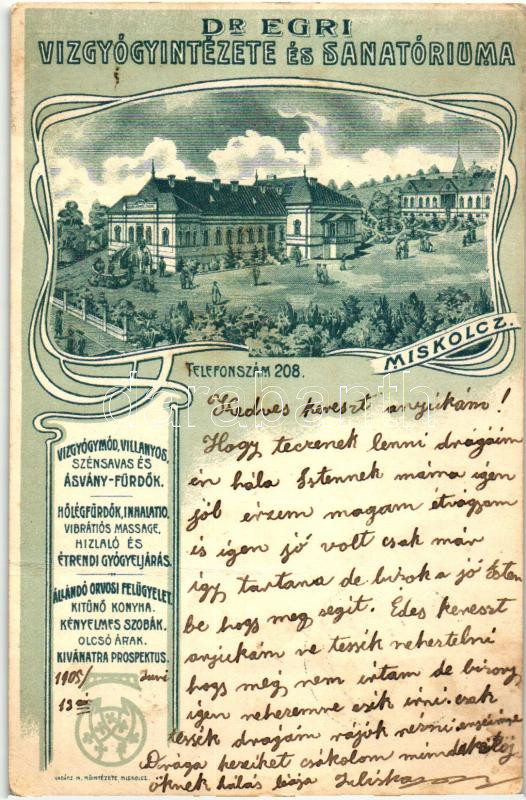 DR EGRI
VIZGYÓGYINTÉZETE és SANATÓRIUMA
MISKOLCZ.
TELEFONSZÁM 208.
darabanth
VIZGYÓGYMÓD, VILLANYOS,
SZÉNSAVAS ÉS
ÁSVÁNY-FÜRDŐK.
HŐLÉGFÜRDŐK, INHALATIO,
VIBRÁTIÓS MASSAGE,
HIZLALÓ ÉS
ÉTRENDI GYÓGYELJÁRÁS.
ÁLLANDÓ ORVOSI FELÜGYELET.
KITŰNŐ KONYHA.
KÉNYELMES SZOBÁK.
OLCSÓ ÁRAK.
KIVÁNATRA PROSPEKTUS.
1905/ Juni
13 án
Kedves kereszt anyukám!
Hogy teczenek lenni drágáim
én hála Istennek máma igen
jól érzem magam étvágyam
is igen jó volt csak már
így tartana de bizok a jó Isten
be hogy meg segit. Édes kereszt
anjukám ne tessék nehertelni
hogy még nem irtam de bizony
igen neheremre esik irni. csak
tessék drágám rájők nézni
Drága kezeiket csókolom mindakettőj
öknek hálás
HADÁSZ N. MŰINTÉZETE, MISKOLCZ.